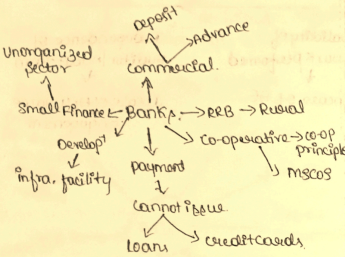 Deposit
Advance
Unorganized
Sector
Commercial.
Small Finance Banks. RRB Rural
Develop^t Co-operative co-op
principle
infra. facility Payment MSCOS
cannot issue
Loans creditcards.